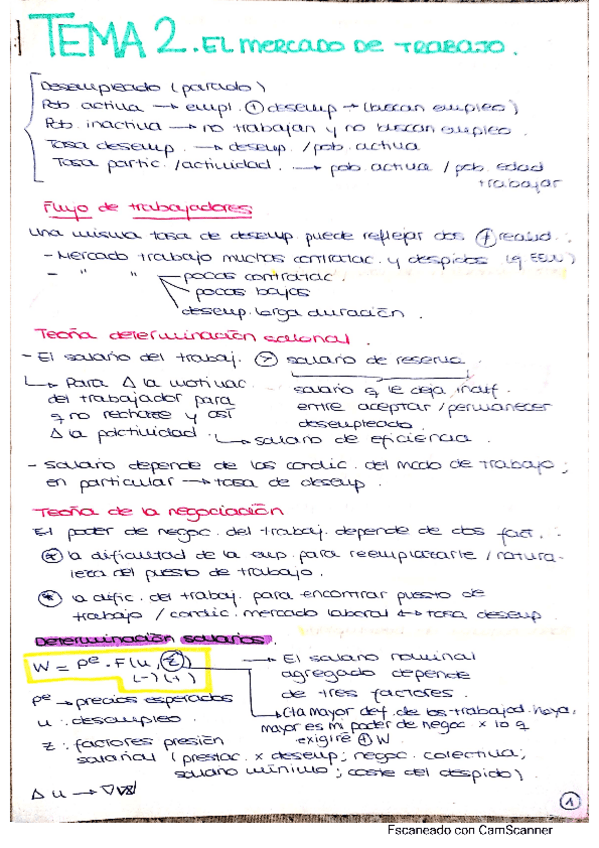 TEMA 2. EL MERCADO DE TRABAJO.
Desempleado (parado)
Pob activa → empl. ⊕ desemp → (buscan empleo)
Pob. inactiva → no trabajan y no buscan empleo.
Tasa desemp. → desemp. / pob. activa
Tasa partic. /actividad. → pob activa / pob edad
trabajar
Flujo de trabajadores
una misma tasa de desemp. puede reflejar dos ≠ realid.:
- Mercado trabajo muchas contratac. y despidos (ej. EEUU)
- " " pocas contratac.
pocas bajas
desemp. larga duración.
Teoría determinación salarial.
- El salario del trabaj. > salario de reserva.
↳ Para Δ la motivac. salario q le deja indif.
del trabajador para entre aceptar / permanecer
q no rechace y así desempleado.
Δ la pdctividad. ↳ salario de eficiencia.
- Salario depende de las condic. del mdo de trabajo;
en particular → tasa de desemp.
Teoría de la negociación
El poder de negoc. del trabaj. depende de dos fact.:
* la dificultad de la emp. para reemplazarle / natura-
leza del puesto de trabajo.
* la dific. del trabaj. para encontrar puesto de
trabajo / condic. mercado laboral ↔ tasa desemp
Determinación salarios.
W = Pᵉ · F(u, z) → El salario nominal
(-) (+) agregado depende
de tres factores.
Pᵉ → precios esperados
↳ Cta mayor def. de los trabajad. haya,
u : desempleo. mayor es mi poder de negoc x lo q
z : factores presión exigiré ⊕ W.
salarial (prestac. x desemp; negoc. colectiva;
salario mínimo; coste del despido)
Δ u →
1
Escaneado con CamScanner